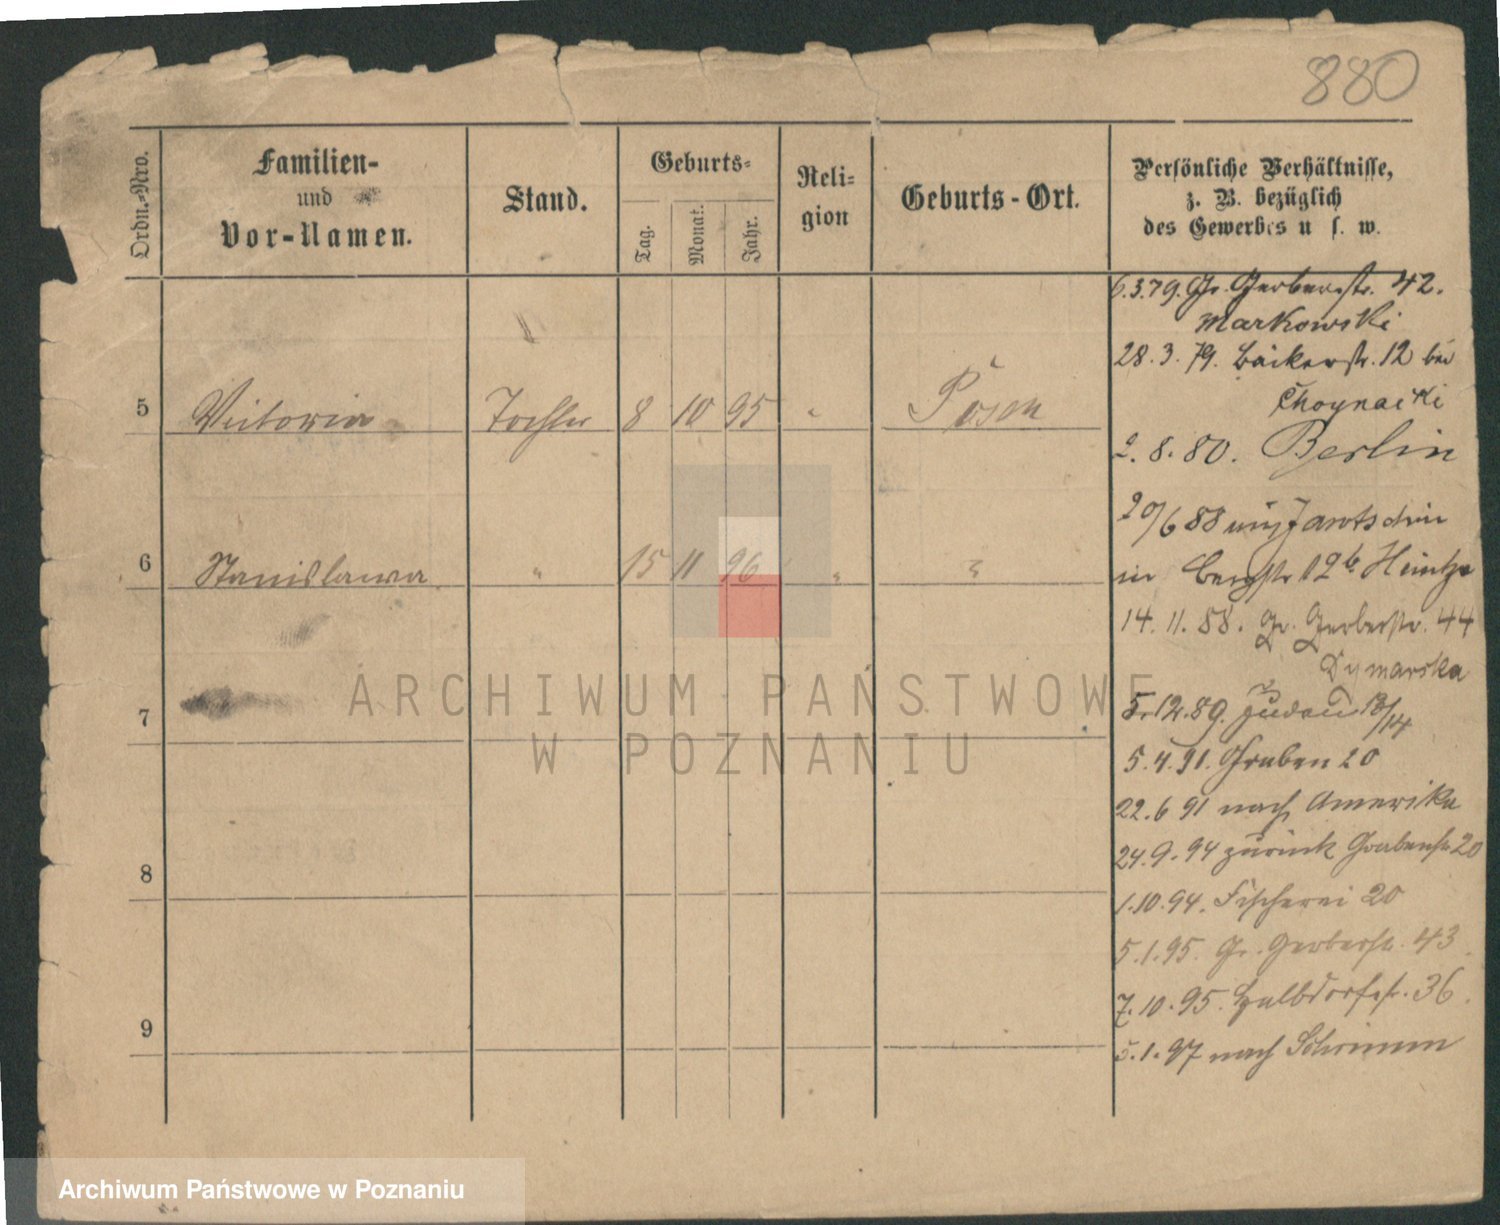 880
Ordn.-Nro.
Familien-
und
Vor-Namen.
Stand.
Geburts-
Tag.
Monat.
Jahr.
Reli-
gion
Geburts-Ort.
Persönliche Verhältnisse,
z. B. bezüglich
des Gewerbes u s. w.
6.3.79. Gr. Gerberstr. 42.
Markowski
28.3.79. Bäckerstr. 12 bei
Choynacki
5 Victoria Tochter 8 10 95 " Posen
2.8.80. Berlin
20/6 88 aus Jarotschin
6 Stanislawa " 15 11 96 " "
in Bergstr 12b Heintze
14.11.88. Gr. Gerberstr. 44
Dymarska
7
5.12.89. 13/14
5.4.91. Graben 20
22.6 91 nach Amerika
24.9.94 zurück Grabenstr 20
8
1.10.94. Fischerei 20
5.1.95. Gr. Gerberstr. 43
7.10.95. Halbdorfstr. 36.
9
5.1.97 nach Schrimm
ARCHIWUM PAŃSTWOWE
W POZNANIU
Archiwum Państwowe w Poznaniu